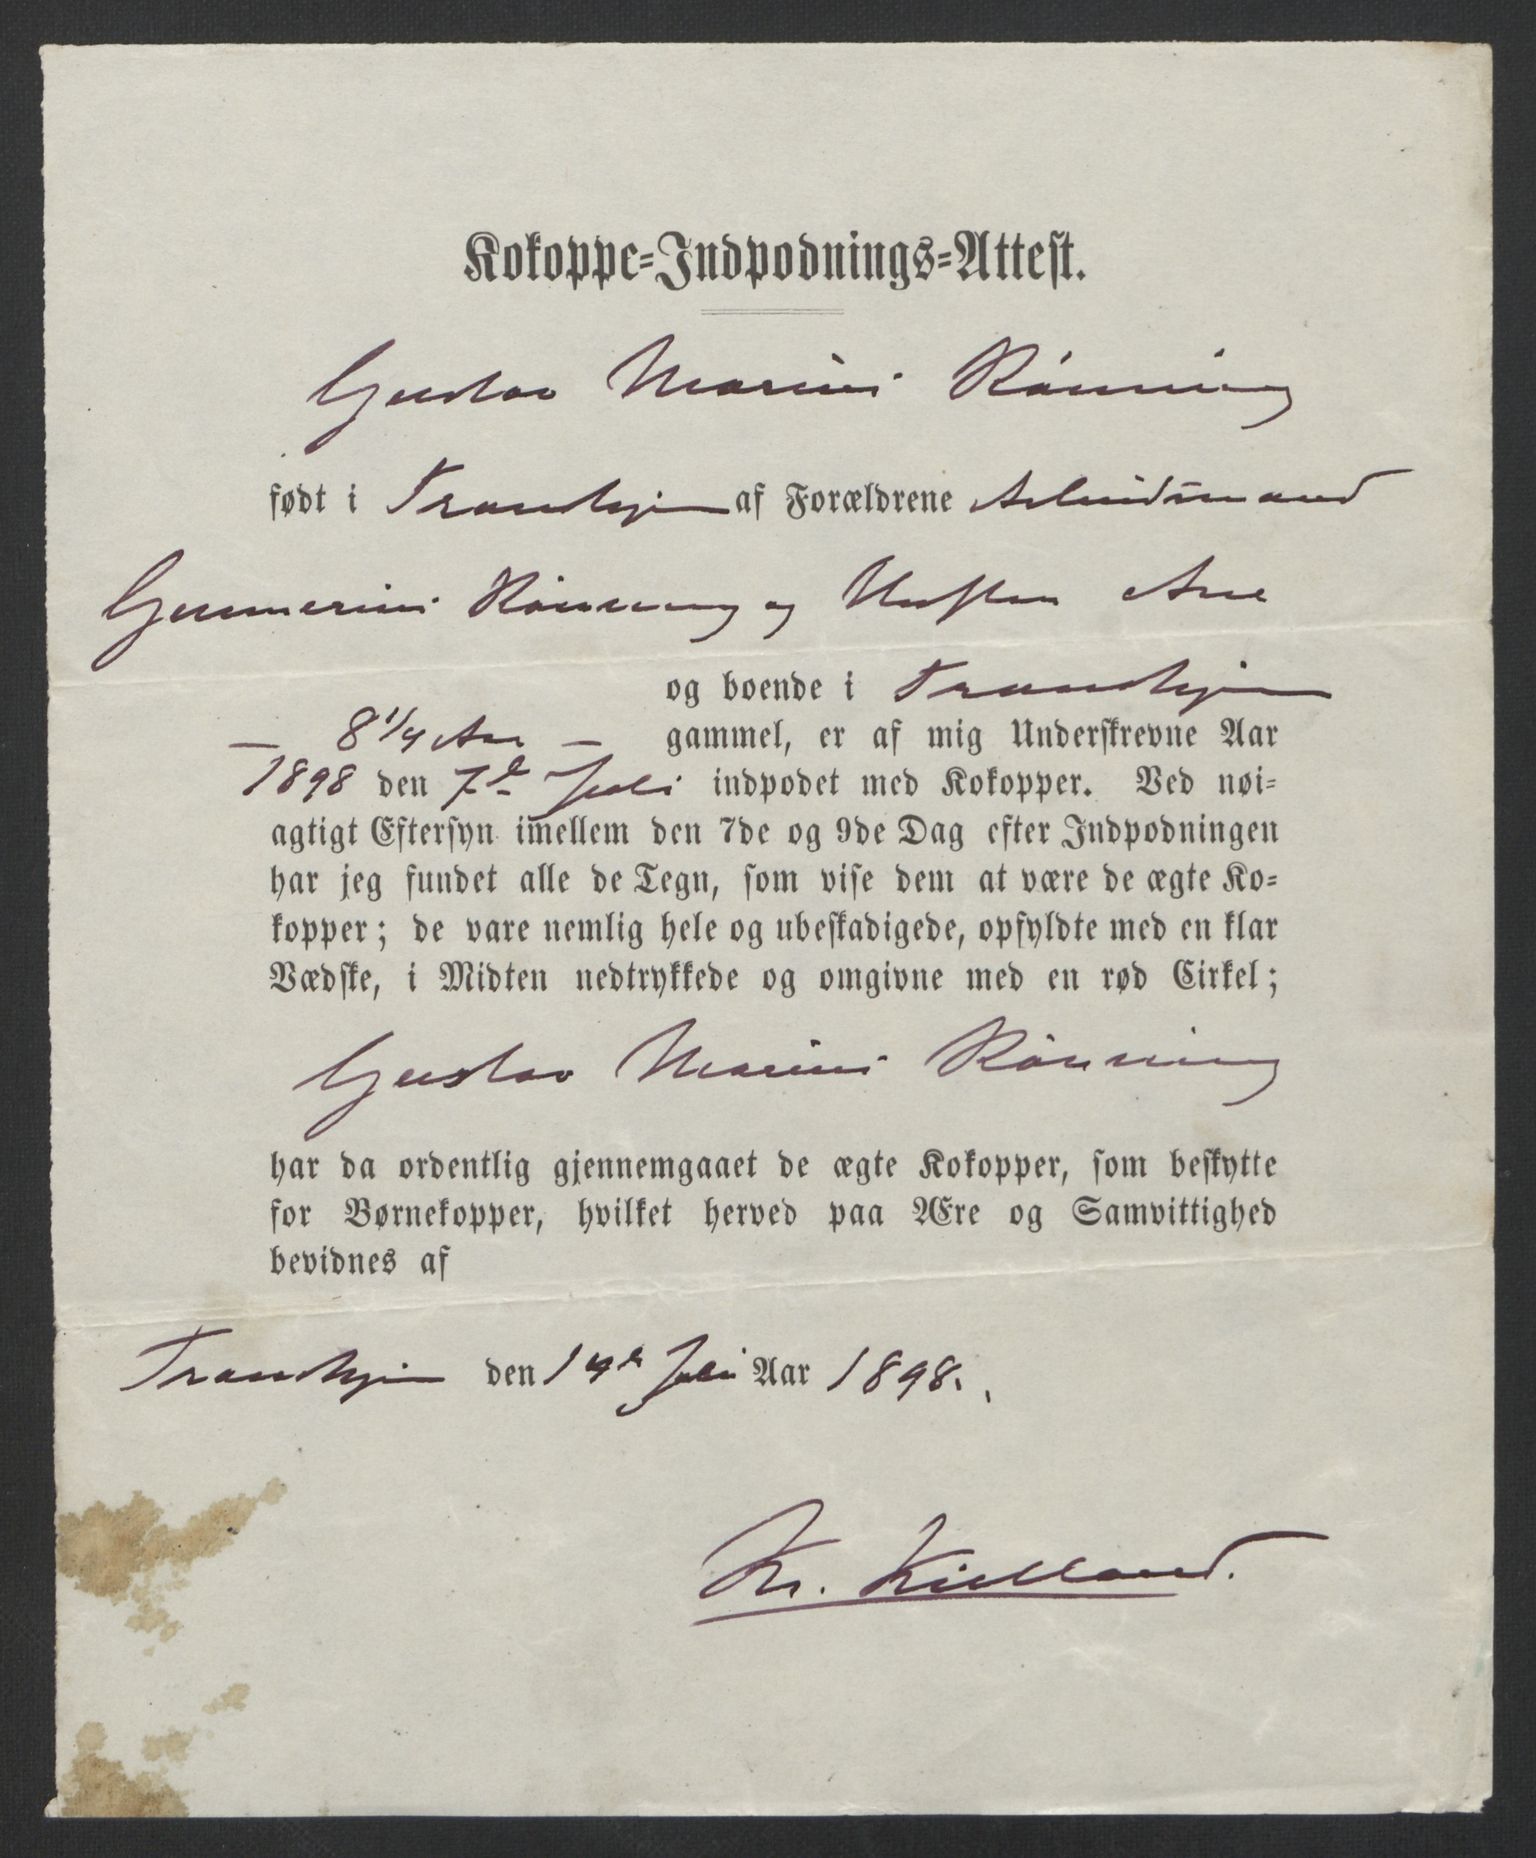 Kokoppe-Indpodnings-Attest.
Gustav Marius Rönning
født i Trondhjem af Forældrene Arbeidsmand
Gunerius Rönning og Hustru
og boende i Trondhjem
— 8 1/4 Aar — gammel, er af mig Underskrevne Aar
1898 den 7de Juli indpodet med Kokopper. Ved nøi-
agtigt Eftersyn imellem den 7de og 9de Dag efter Indpodningen
har jeg fundet alle de Tegn, som vise dem at være de ægte Ko-
kopper; de vare nemlig hele og ubeskadigede, opfyldte med en klar
Vædske, i Midten nedtrykkede og omgivne med en rød Cirkel;
Gustav Marius Rönning
har da ordentlig gjennemgaaet de ægte Kokopper, som beskytte
for Børnekopper, hvilket herved paa Ære og Samvittighed
bevidnes af
Trondhjem den 14de Juli Aar 1898.
Kr. Kielland.